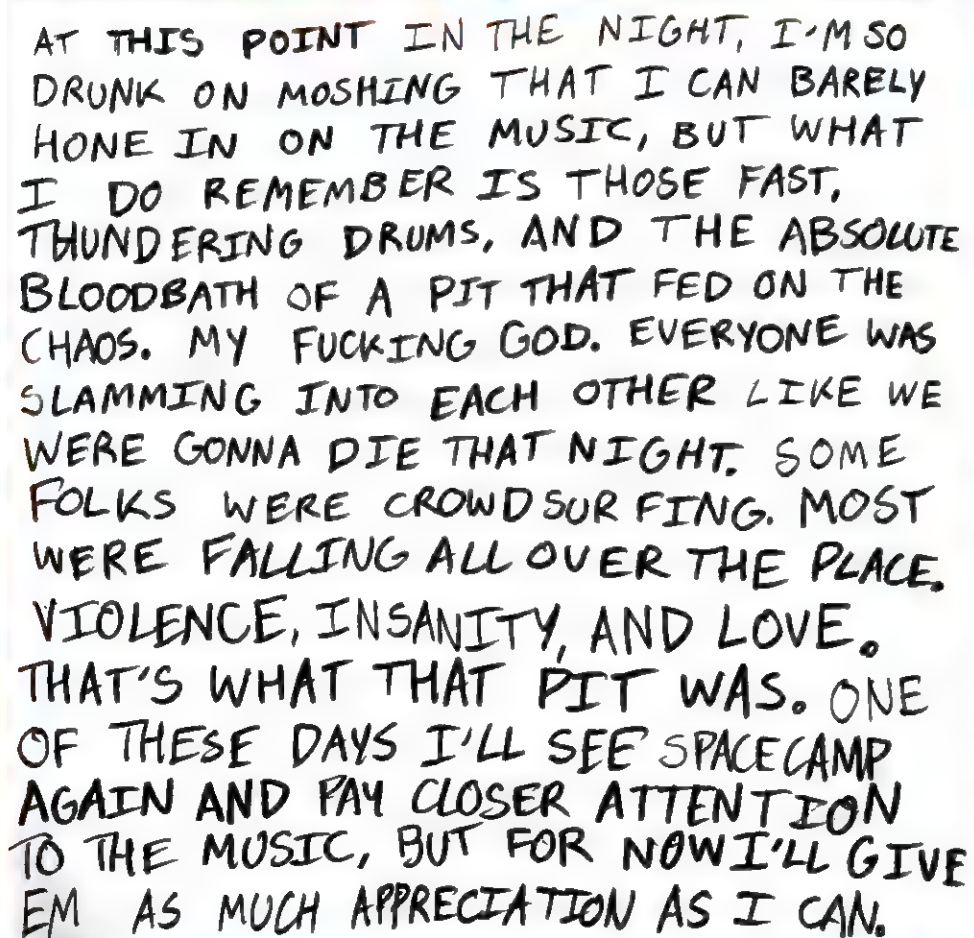 AT THIS POINT IN THE NIGHT, I'M SO
DRUNK ON MOSHING THAT I CAN BARELY
HONE IN ON THE MUSIC, BUT WHAT
I DO REMEMBER IS THOSE FAST,
THUNDERING DRUMS, AND THE ABSOLUTE
BLOODBATH OF A PIT THAT FED ON THE
CHAOS. MY FUCKING GOD. EVERYONE WAS
SLAMMING INTO EACH OTHER LIKE WE
WERE GONNA DIE THAT NIGHT. SOME
FOLKS WERE CROWDSURFING. MOST
WERE FALLING ALL OVER THE PLACE.
VIOLENCE, INSANITY, AND LOVE.
THAT'S WHAT THAT PIT WAS. ONE
OF THESE DAYS I'LL SEE SPACECAMP
AGAIN AND PAY CLOSER ATTENTION
TO THE MUSIC, BUT FOR NOW I'LL GIVE
EM AS MUCH APPRECIATION AS I CAN.